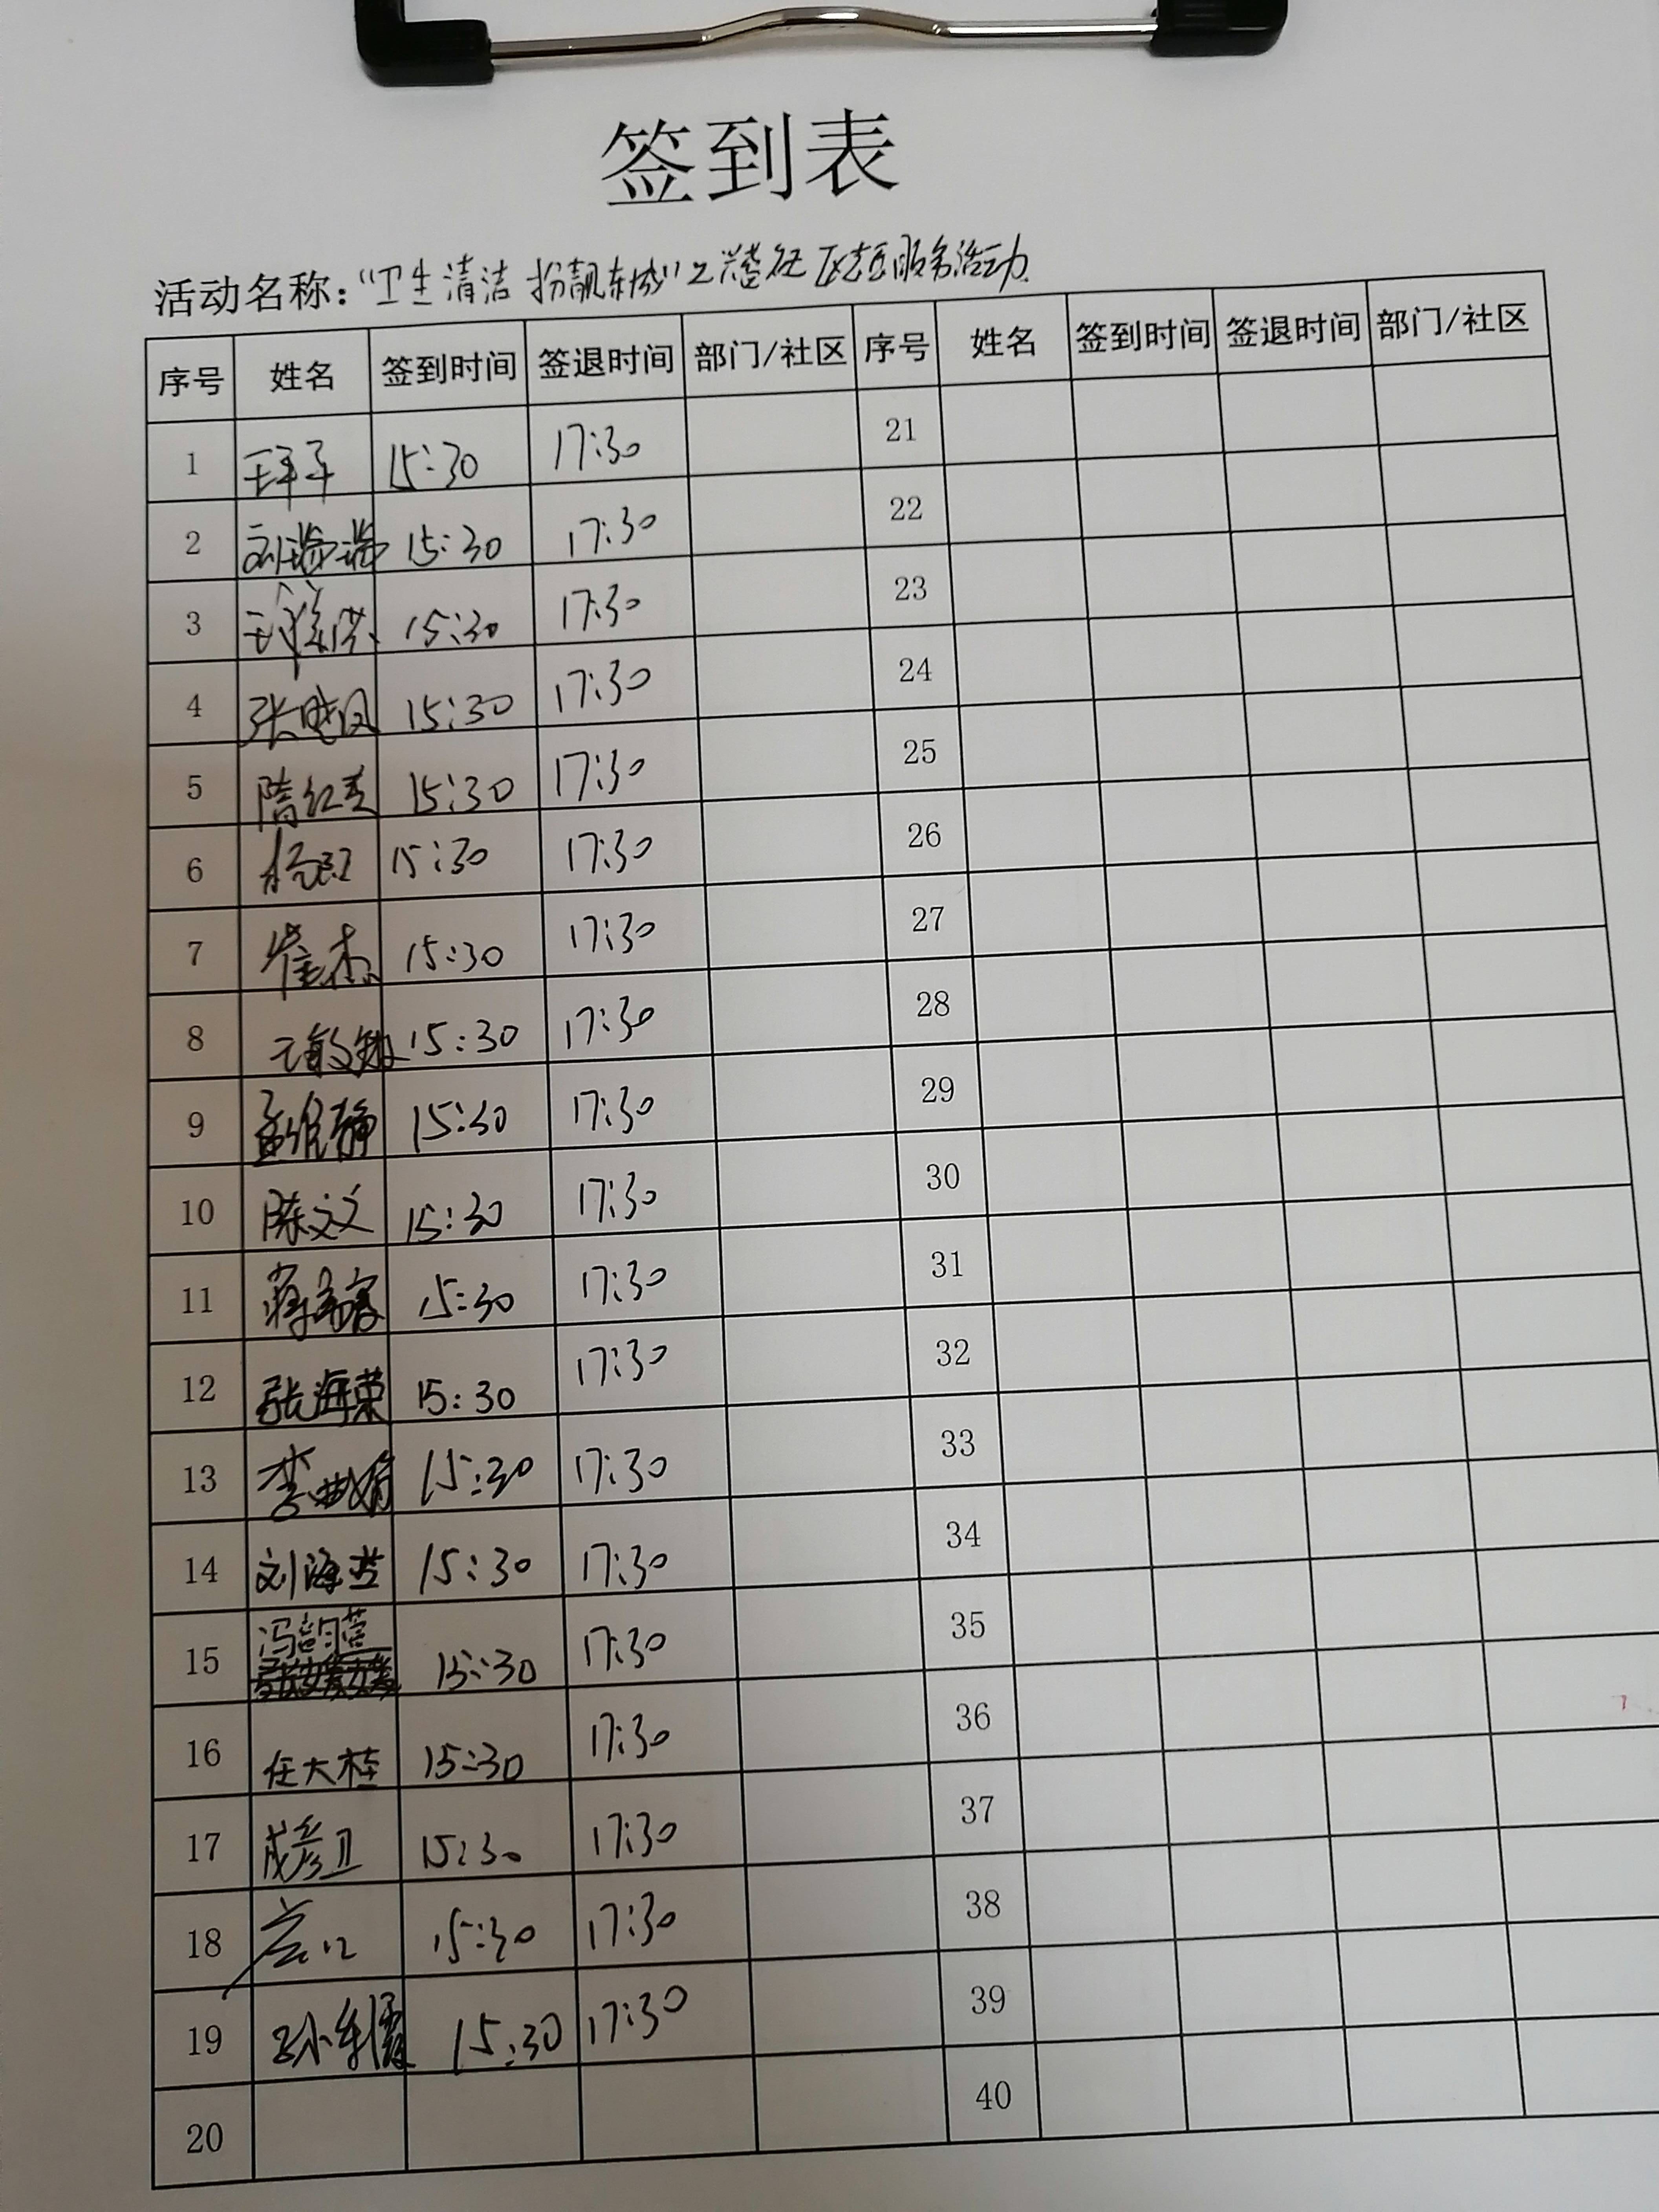 签到表
活动名称:“卫生清洁 扮靓东城”之 志愿服务活动
序号 姓名 签到时间 签退时间 部门/社区 序号 姓名 签到时间 签退时间 部门/社区
1 15:30 17:30 21
2 刘瑞瑞 15:30 17:30 22
3 15:30 17:30 23
4 张晓 15:30 17:30 24
5 隋红 15:30 17:30 25
6 15:30 17:30 26
7 崔杰 15:30 17:30 27
8 15:30 17:30 28
9 孟维静 15:30 17:30 29
10 陈文文 15:30 17:30 30
11 蒋 15:30 17:30 31
12 张海荣 15:30 17:30 32
13 李 娟 15:30 17:30 33
14 刘海 15:30 17:30 34
15 冯韵萱 15:30 17:30 35
16 任大桂 15:30 17:30 36
17 成彦卫 15:30 17:30 37
18 15:30 17:30 38
19 孙 霞 15:30 17:30 39
20 40